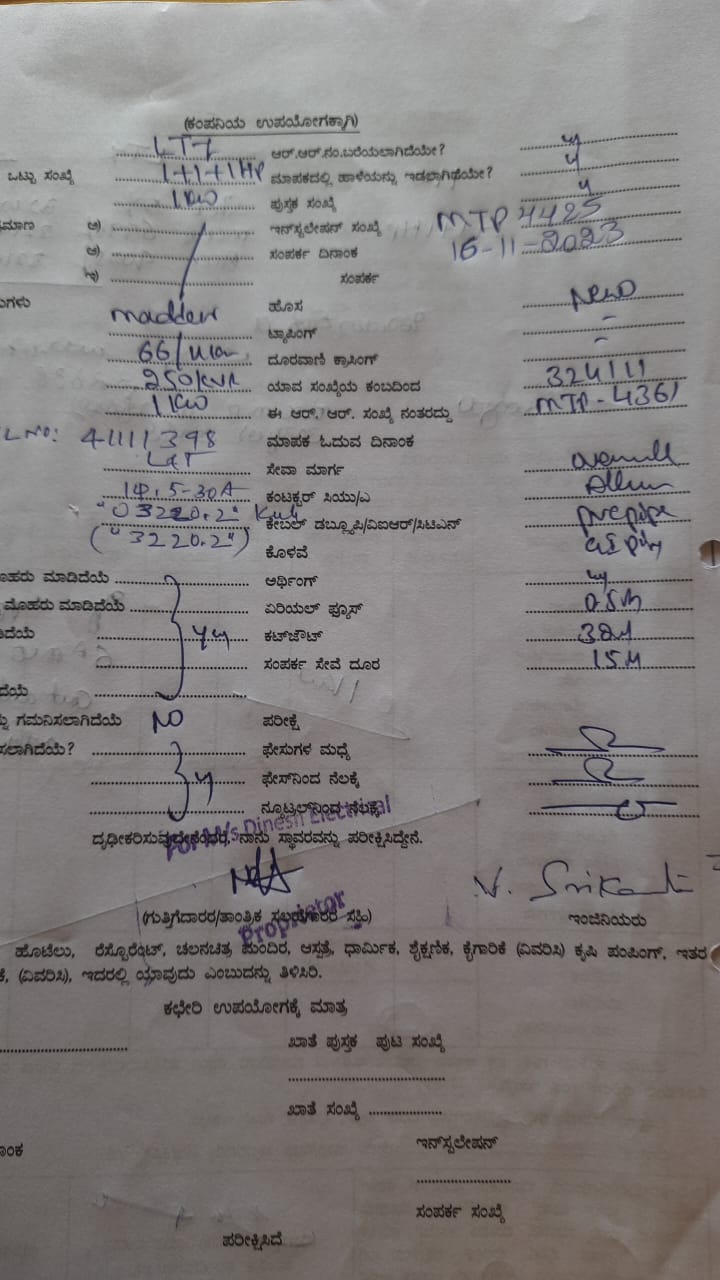 (ಕಂಪನಿಯ ಉಪಯೋಗಕ್ಕಾಗಿ)
LT7 ಆರ್.ಆರ್.ನಂ.ಬರೆಯಲಾಗಿದೆಯೇ? y
ಒಟ್ಟು ಸಂಖ್ಯೆ 1+1+1HP ಮಾಪಕದಲ್ಲಿ ಹಾಳೆಯನ್ನು ಇಡಲಾಗಿದೆಯೇ? y
1KW ಪುಸ್ತಕ ಸಂಖ್ಯೆ y
ಅ) ಇನ್‌ಸ್ಟಲೇಷನ್ ಸಂಖ್ಯೆ MTP 4425
ಆ) ಸಂಪರ್ಕ ದಿನಾಂಕ 16-11-2023
ಇ) ಸಂಪರ್ಕ
ಹೊಸ New
ಟ್ಯಾಪಿಂಗ್ -
66/11KV ದೂರವಾಣಿ ಕ್ರಾಸಿಂಗ್ -
250KVA ಯಾವ ಸಂಖ್ಯೆಯ ಕಂಬದಿಂದ
1KW ಈ ಆರ್. ಆರ್. ಸಂಖ್ಯೆ ನಂತರದ್ದು MTP-4361
L NO: 41111398 ಮಾಪಕ ಓದುವ ದಿನಾಂಕ
L&T ಸೇವಾ ಮಾರ್ಗ
1Φ, 5-30A ಕಂಟಕ್ಟರ್ ಸಿಯು/ಎ
"03220.2" Kwh ಕೇಬಲ್ ಡಬ್ಲ್ಯೂಪಿ/ವಿಐಆರ್/ಸಿಟಿಎನ್
("3220.2") ಕೊಳವೆ GI pipe
ಮೊಹರು ಮಾಡಿದೆಯೆ ಅರ್ಥಿಂಗ್ y
ಮೊಹರು ಮಾಡಿದೆಯೆ ಏರಿಯಲ್ ಫ್ಯೂಸ್
yy ಕಟ್‌ಔಟ್
ಸಂಪರ್ಕ ಸೇವೆ ದೂರ 15M
ಗಮನಿಸಲಾಗಿದೆಯೆ NO ಪರೀಕ್ಷೆ
ಫೇಸುಗಳ ಮಧ್ಯೆ
y ಫೇಸ್‌ನಿಂದ ನೆಲಕ್ಕೆ
ನ್ಯೂಟ್ರಲ್‌ನಿಂದ ನೆಲಕ್ಕೆ
For M/s Dinesh Electrical
ದೃಢೀಕರಿಸುವುದೇನೆಂದರೆ, ನಾನು ಸ್ಥಾವರವನ್ನು ಪರೀಕ್ಷಿಸಿದ್ದೇನೆ.
V. Srikant
Proprietor
(ಗುತ್ತಿಗೆದಾರರ/ತಾಂತ್ರಿಕ ಸಲಹೆಗಾರರ ಸಹಿ) ಇಂಜಿನಿಯರು
ಹೊಟೆಲು, ರೆಸ್ಟೊರೆಂಟ್, ಚಲನಚಿತ್ರ ಮಂದಿರ, ಆಸ್ಪತ್ರೆ, ಧಾರ್ಮಿಕ, ಶೈಕ್ಷಣಿಕ, ಕೈಗಾರಿಕೆ (ವಿವರಿಸಿ) ಕೃಷಿ ಪಂಪಿಂಗ್, ಇತರ
(ವಿವರಿಸಿ), ಇದರಲ್ಲಿ ಯಾವುದು ಎಂಬುದನ್ನು ತಿಳಿಸಿರಿ.
ಕಛೇರಿ ಉಪಯೋಗಕ್ಕೆ ಮಾತ್ರ
ಖಾತೆ ಪುಸ್ತಕ ಪುಟ ಸಂಖ್ಯೆ
ಖಾತೆ ಸಂಖ್ಯೆ
ಇನ್‌ಸ್ಟಲೇಷನ್
ಸಂಪರ್ಕ ಸಂಖ್ಯೆ
ಪರೀಕ್ಷಿಸಿದೆ